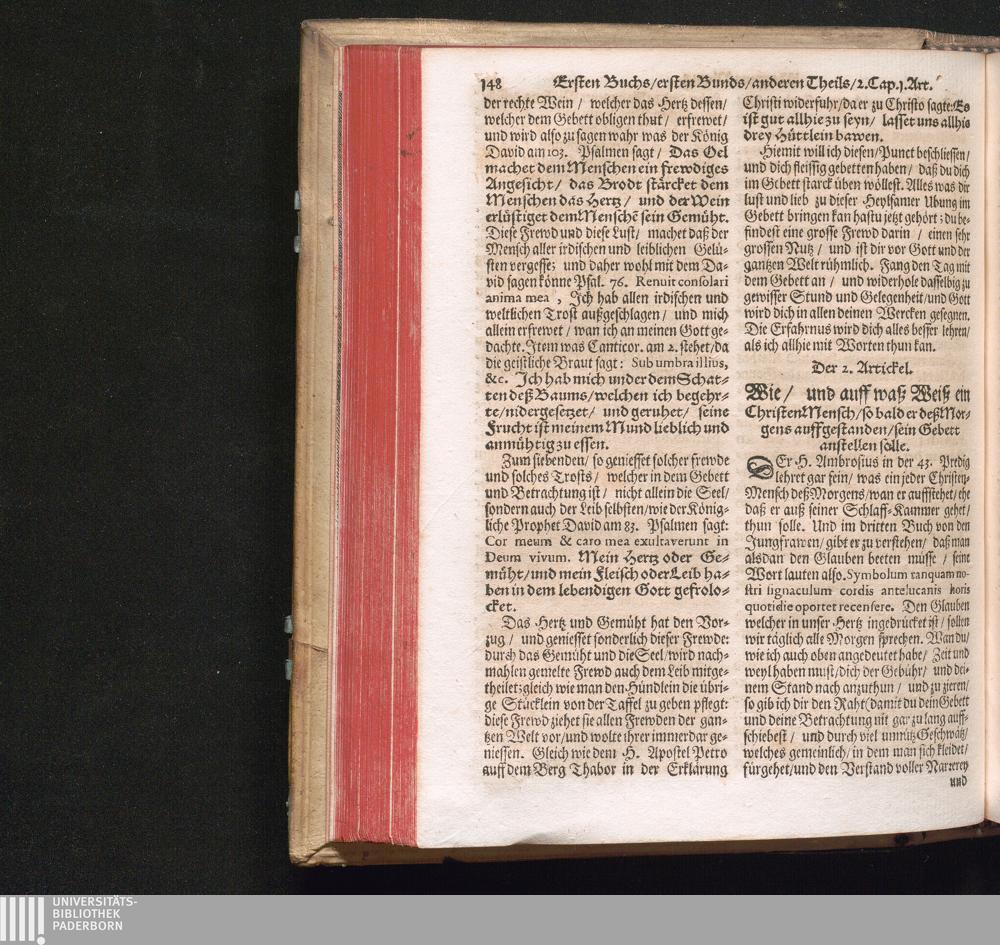 148 Ersten Buchs/ersten Bunds/anderen Theils/2.Cap.1.Art.
der rechte Wein / welcher das Hertz dessen/
welcher dem Gebett obligen thut / erfrewet/
und wird also zu sagen wahr was der König
David am 103. Psalmen sagt / Das Oel
machet dem Menschen ein frewdiges
Angesicht / das Brodt stärcket dem
Menschen das Hertz / und der Wein
erlüstiget dem Menschē sein Gemüht.
Diese Frewd und diese Lust / machet daß der
Mensch aller irdischen und leiblichen Gelü-
sten vergesse; und daher wohl mit dem Da-
vid sagen könne Psal. 76. Renuit consolari
anima mea , Ich hab allen irdischen und
weltlichen Trost außgeschlagen / und mich
allein erfrewet / wan ich an meinen Gott ge-
dachte. Item was Canticor. am 2. stehet/da
die geistliche Braut sagt: Sub umbra illius,
&c. Ich hab mich under dem Schat-
ten deß Baums/welchen ich begehr-
te/nidergesetzet / und geruhet / seine
Frucht ist meinem Mund lieblich und
anmühtig zu essen.
Zum siebenden / so geniesset solcher frewde
und solches Trosts / welcher in dem Gebett
und Betrachtung ist / nicht allein die Seel/
sondern auch der Leib selbsten/wie der König-
liche Prophet David am 83. Psalmen sagt:
Cor meum & caro mea exultaverunt in
Deum vivum. Mein Hertz oder Ge-
müht/und mein Fleisch oder Leib ha-
ben in dem lebendigen Gott gefrolo-
cket.
Das Hertz und Gemüht hat den Vor-
zug / und geniesset sonderlich dieser Frewde:
durch das Gemüht und die Seel/wird nach-
mahlen gemelte Frewd auch dem Leib mitge-
theilet: gleich wie man den Hündlein die übri-
ge Stücklein von der Taffel zu geben pflegt:
diese Frewd ziehet sie allen Frewden der gan-
tzen Welt vor/und wolte ihrer immerdar ge-
niessen. Gleich wie dem H. Apostel Petro
auff dem Berg Thabor in der Erklärung
Christi widerfuhr/da er zu Christo sagte: Es
ist gut allhie zu seyn / lasset uns allhie
drey Hüttlein bawen.
Hiemit will ich diesen/Punct beschliessen/
und dich fleissig gebetten haben / daß du dich
im Gebett starck üben wöllest. Alles was dir
lust und lieb zu dieser Heylsamer Ubung im
Gebett bringen kan hastu jetzt gehört: du be-
findest eine grosse Frewd darin / einen sehr
grossen Nutz / und ist dir vor Gott und der
gantzen Welt rühmlich. Fang den Tag mit
dem Gebett an / und widerhole dasselbig zu
gewisser Stund und Gelegenheit/und Gott
wird dich in allen deinen Wercken gesegnen.
Die Erfahrnus wird dich alles besser lehren/
als ich allhie mit Worten thun kan.
Der 2. Artickel.
Wie / und auff waß Weiß ein
Christen Mensch/so bald er deß Mor-
gens auffgestanden/sein Gebett
anstellen solle.
DEr H. Ambrosius in der 43. Predig
lehret gar fein/ was ein jeder Christen-
Mensch deß Morgens/wan er auffstehet/ehe
daß er auß seiner Schlaff-Kammer gehet/
thun solle. Und im dritten Buch von den
Jungfrawen/ gibt er zu verstehen/ daß man
alsdan den Glauben beeten müsse / seine
Wort lauten also. Symbolum tanquam no-
stri signaculum cordis antelucanis horis
quotidie oportet recensere. Den Glauben
welcher in unser Hertz ingedrücket ist / sollen
wir täglich alle Morgen sprechen. Wan du/
wie ich auch oben angedeutet habe/ Zeit und
weyl haben must/dich der Gebühr/ und dei-
nem Stand nach anzuthun / und zu zieren/
so gib ich dir den Raht (damit du dein Gebett
und deine Betrachtung nit gar zu lang auff-
schiebest / und durch viel unnütz Geschwätz/
welches gemeinlich/ in dem man sich kleidet/
fürgehet/und den Verstand voller Narrerey
und
UNIVERSITÄTS-
BIBLIOTHEK
PADERBORN